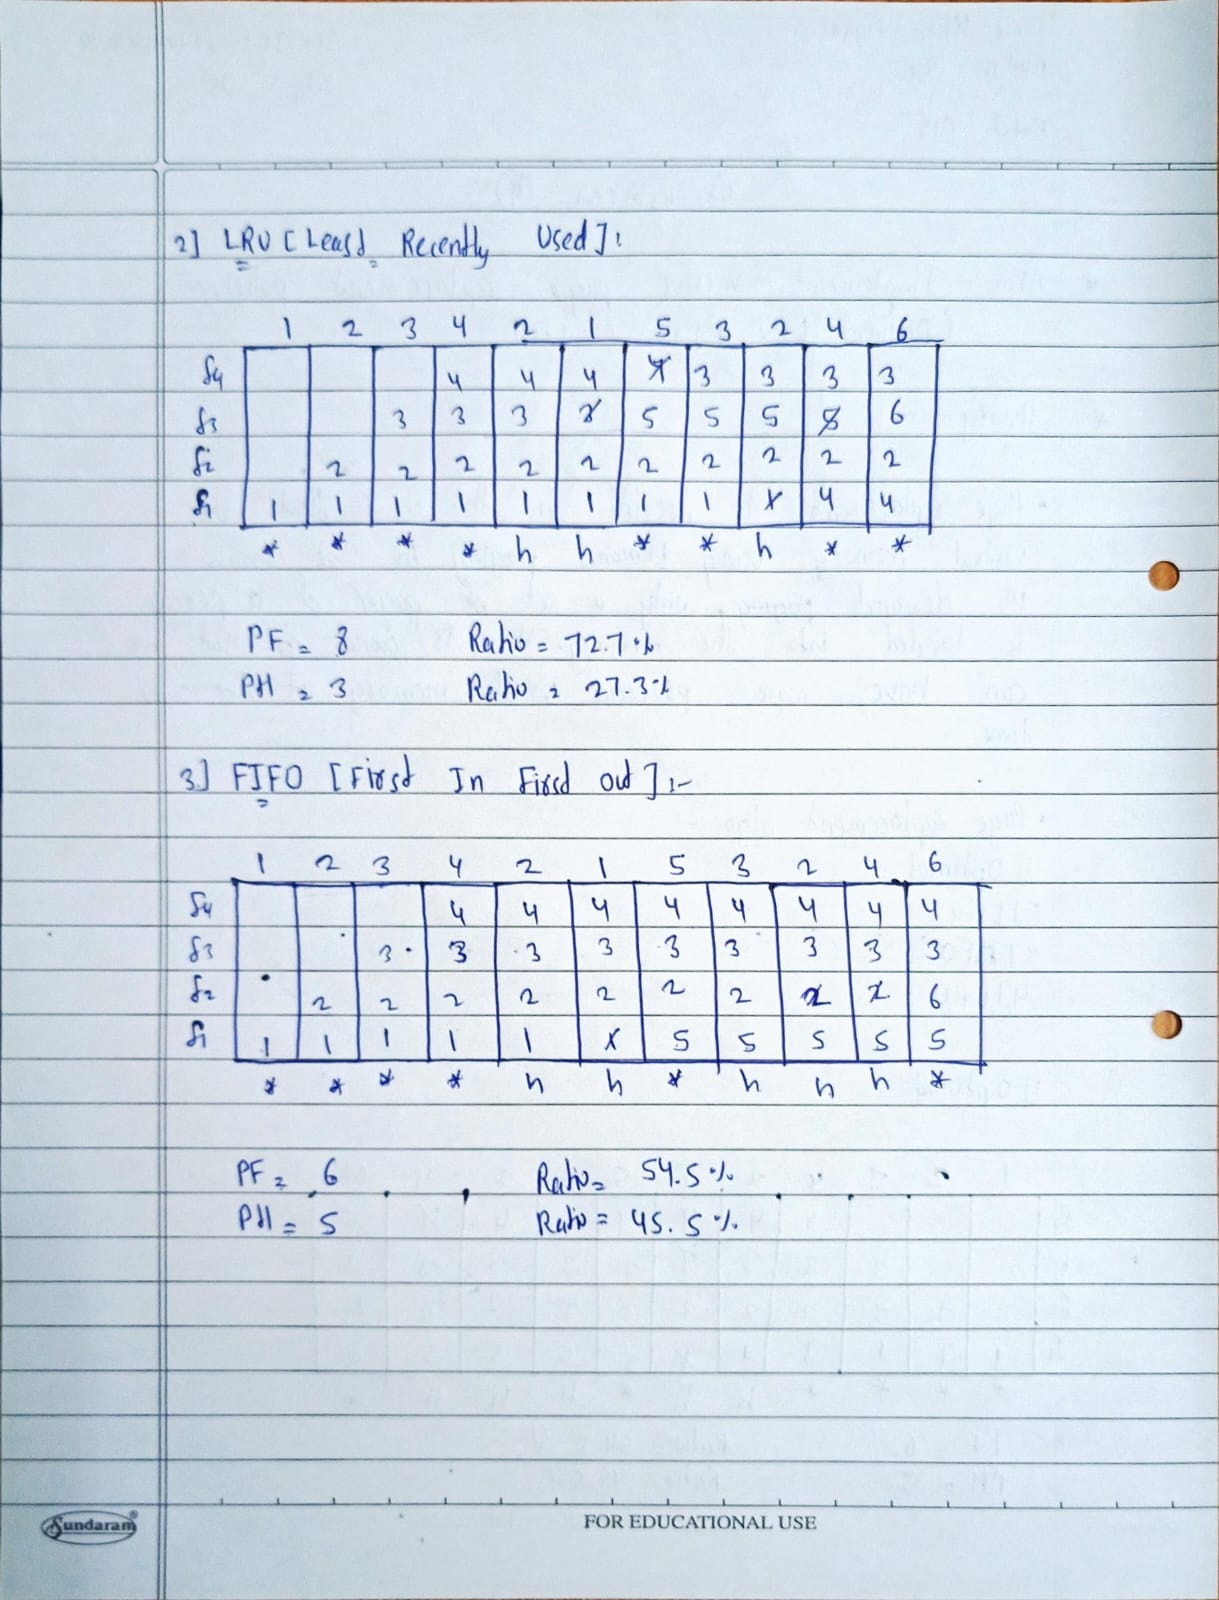 2] LRU [Least Recently Used]:
1 2 3 4 2 1 5 3 2 4 6
f4 4 4 4 4 3 3 3 3
f3 3 3 3 3 5 5 5 5 6
f2 2 2 2 2 2 2 2 2 2 2
f1 1 1 1 1 1 1 1 1 1 4 4
* * * * h h * * h * *
PF = 8 Ratio = 72.7%
PH = 3 Ratio = 27.3%
3] FIFO [First In First out]:-
1 2 3 4 2 1 5 3 2 4 6
f4 4 4 4 4 4 4 4 4
f3 3 3 3 3 3 3 3 3 3
f2 2 2 2 2 2 2 2 2 2 6
f1 1 1 1 1 1 1 5 5 5 5 5
* * * * h h * h h h *
PF = 6 Ratio = 54.5%
PH = 5 Ratio = 45.5%
Sundaram®
FOR EDUCATIONAL USE